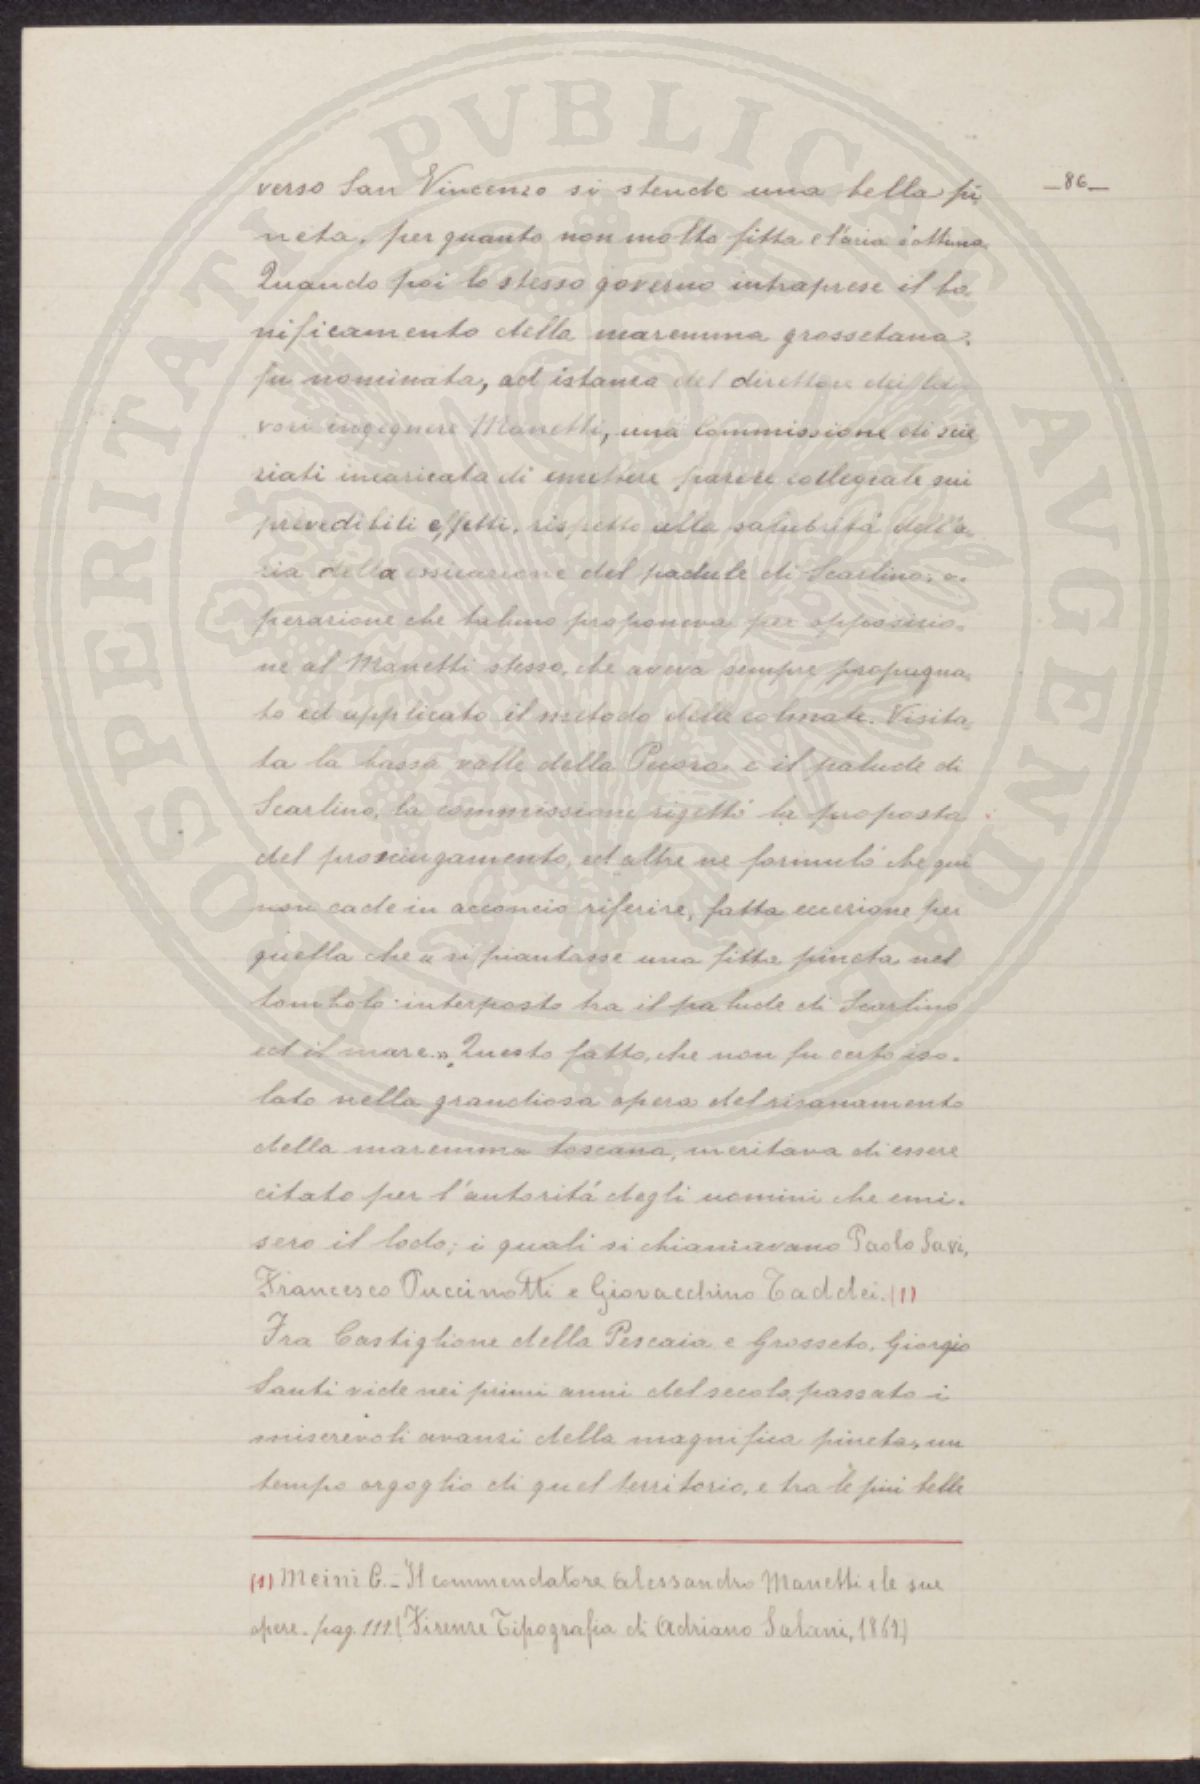 PROSPERITATI PVBLICAE AVGENDAE
_86_
verso San Vincenzo si stende una bella pi
neta, per quanto non molto fitta e l'aria è ottima.
Quando poi lo stesso governo intraprese il bo-
nificamento della maremma grossetana,
fu nominata, ad istanza del direttore dei la-
vori ingegnere Manetti, una Commissione di scie
ziati incaricata di emettere parere collegiale sui
prevedibili effetti, rispetto alla salubrità dell'a-
ria della essicazione del padule di Scarlino, o-
perazione che taluno proponeva per opposizio-
ne al Manetti stesso, che aveva sempre propugna-
to ed applicato il metodo delle colmate. Visita-
ta la bassa valle della Pecora e il palude di
Scarlino, la commissione rigettò la proposta
del prosciugamento, ed altre ne formulò che qui
non cade in acconcio riferire, fatta eccezione per
quella che « si piantasse una fitta pineta nel
tombolo interposto tra il palude di Scarlino
ed il mare.» Questo fatto, che non fu certo iso-
lato nella grandiosa opera del risanamento
della maremma toscana, meritava di essere
citato per l'autorità degli uomini che emi-
sero il lodo; i quali si chiamavano Paolo Savi,
Francesco Puccinotti e Giovacchino Taddei. (1)
Fra Castiglione della Pescaia e Grosseto, Giorgio
Santi vide nei primi anni del secolo passato i
miserevoli avanzi della magnifica pineta, un
tempo orgoglio di quel territorio, e tra le più belle
(1) Meini C. - Il commendatore Alessandro Manetti e le sue
opere. pag. 111 (Firenze Tipografia di Adriano Salani, 1867)